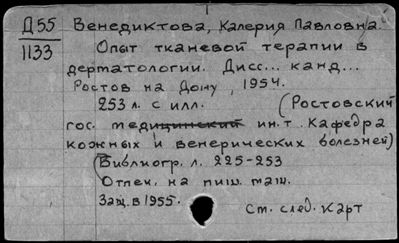 Д55 Венедиктова, Калерия Павловна
1133 Опыт тканевой терапии в
дерматологии. Дисс... канд...
Ростов на Дону, 1954.
253 л. с илл. (Ростовский
гос. медицинский ин.т. Кафедра
кожных и венерических болезней)
Библиогр. л. 225-253
Отпеч. на пиш. маш.
Защ. в 1955.
См. след. карт